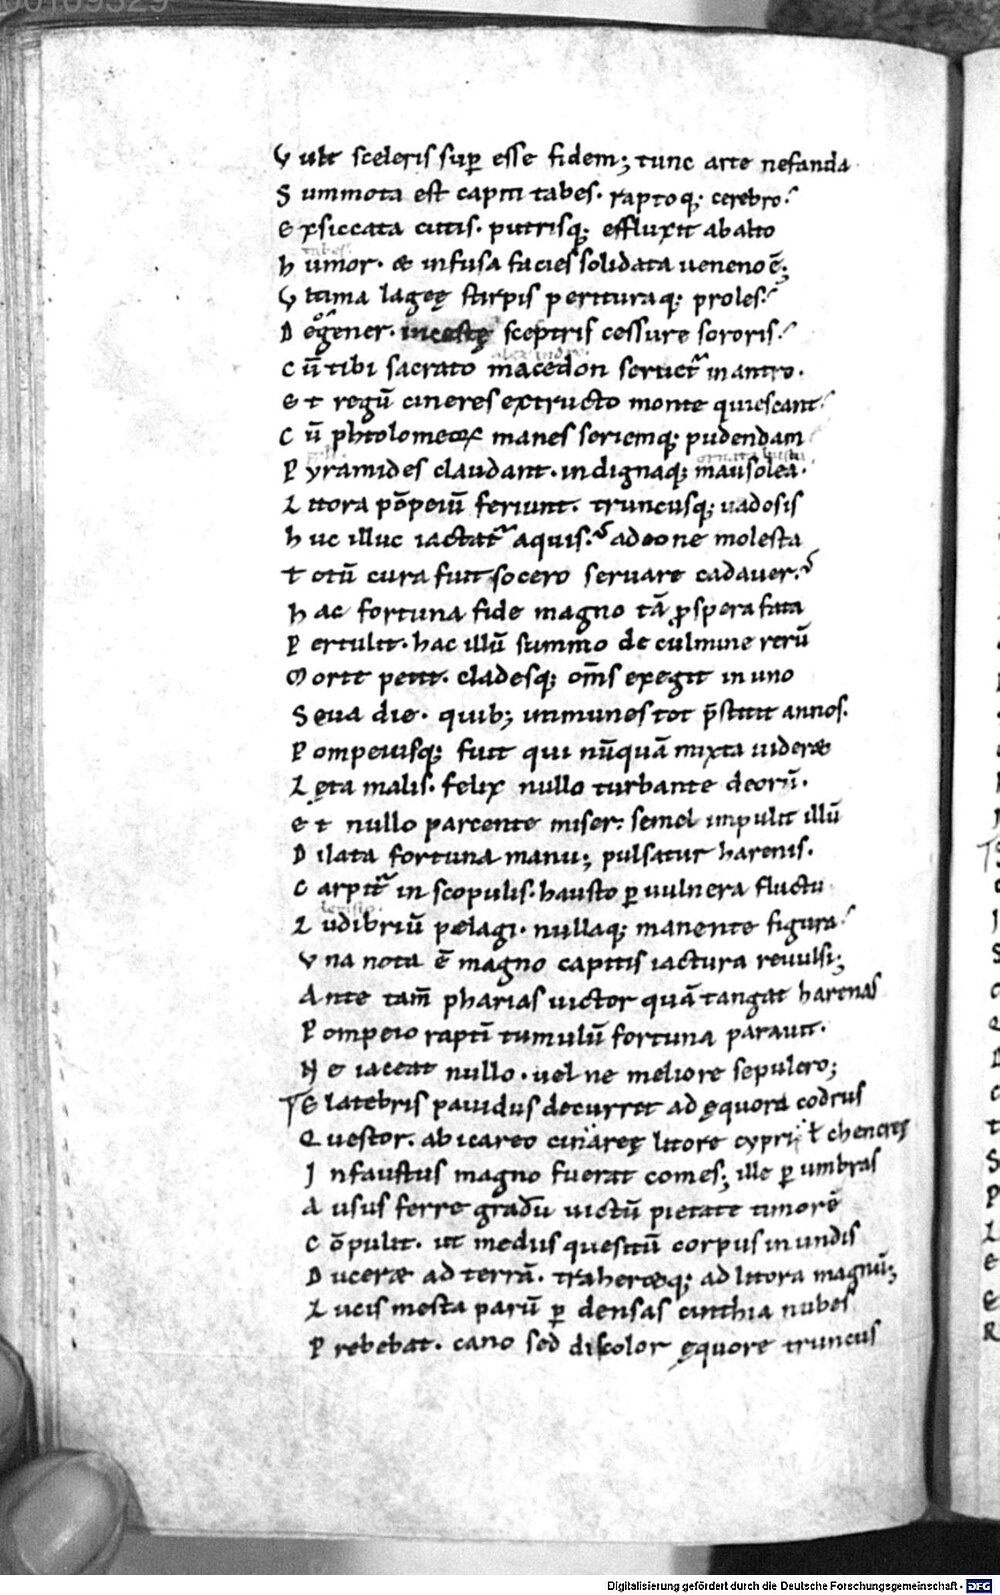 00109329
V ult sceleris sup̱ esse fidem; tunc arte nefanda
S ummota est capiti tabes. raptoq; cerebro.
E xsiccata cutis. putrisq; effluxit ab alto
tabes.
h umor. & infusa facies solidata ueneno ē;
V ltima lageę stirpis perituraq; proles.
D egener. incestę sceptris cessure sororis.
alexandro.
C ū tibi sacrato macedon seruet᷑ in antro.
E t regū cineres extructo monte quiescant.
C ū phtolomeoꝝ manes seriemq; pudendam
P yramides claudant. indignaq; mausolea.
L ittora pōpeiū feriunt. truncusq; uadosis
h uc illuc iactat᷑ aquis. adeo ne molesta
T otū cura fuit socero seruare cadauer.
h ac fortuna fide magno tā ꝓspera fata
P ertulit. hac illū summo de culmine rerū
M orte petit. cladesq; om̄s exegit in uno
S eua die. quib; immunes tot p̄stitit annos.
P ompeiusq; fuit qui nūquā mixta uideret
L ęta malis. felix nullo turbante deorū.
E t nullo parcente miser: semel impulit illū
D ilata fortuna manu; pulsatur harenis.
C arpit᷑ in scopulis. hausto ꝑ uulnera fluctu
L udibriū pelagi. nullaq; manente figura
V na nota ē magno capitis iactura reuulsi;
A nte tam̄ pharias uictor quā tangat harenas
P ompeio raptī tumulū fortuna parauit.
N e iaceat nullo. uel ne meliore sepulcro;
E latebris pauidus decurrit ad ęquora codrus
Q uestor. ab icareo cinareę litore cypri ł chencreę
I nfaustus magno fuerat comes; ille ꝑ umbras
A usus ferre gradū uictū pietate timorē
C ōpulit. ut mediis quesitū corpus in undis
D uceret ad terrā. traheretq; ad litora magnū;
L ucis mesta parū ꝑ densas cinthia nubes
P rebebat. cano sed discolor ęquore truncus
Digitalisierung gefördert durch die Deutsche Forschungsgemeinschaft - DFG